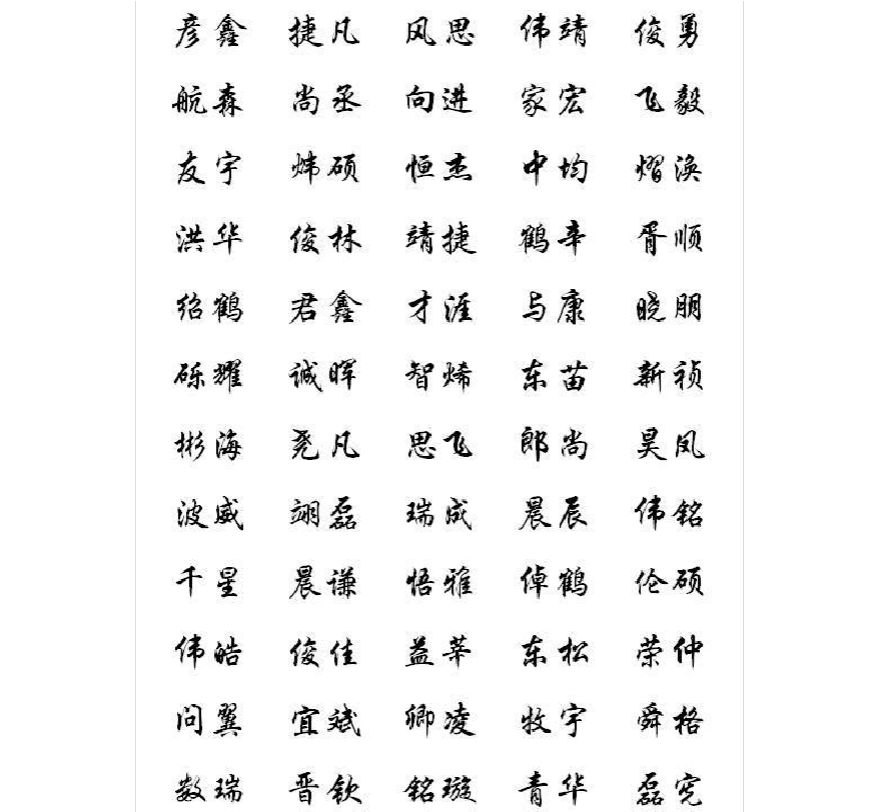 彦鑫 捷凡 风思 伟靖 俊勇
航森 尚丞 向进 家宏 飞毅
友宇 炜硕 恒杰 中均 熠涣
洪华 俊林 靖捷 鹤辛 胥顺
绍鹤 君鑫 才涯 与康 晓朋
砾耀 诚晖 智烯 东苗 新祯
彬海 尧凡 思飞 郎尚 昊凤
波威 翊磊 瑞成 晨辰 伟铭
千星 晨谦 悟雅 倬鹤 伦硕
伟皓 俊佳 益莘 东松 荣仲
问翼 宜斌 卿凌 牧宇 舜格
数瑞 晋钦 铭璇 青华 磊